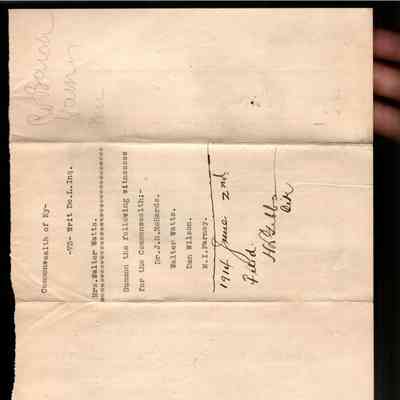 Commonwealth of Ky-
-VS- Writ De.L.Inq.
Mrs.Walter Watts.
Summon the following witnesses
for the Commonwealth:-
Dr.J.B.
Walter Watts.
Dan Wilson.
M.I.Barney.
1914 June 2nd
Filed
Clk